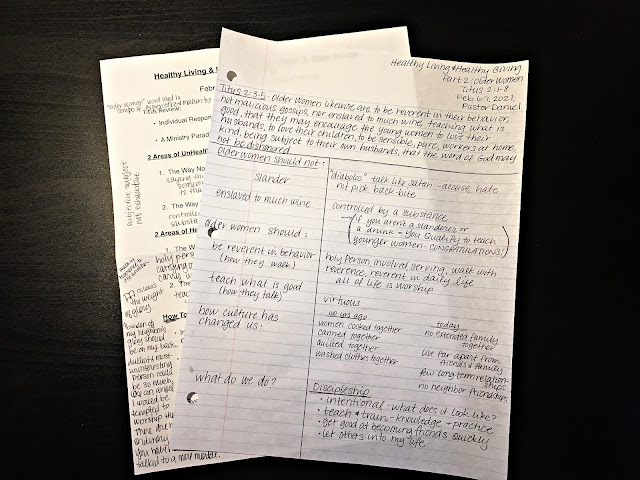 Healthy Living & Healthy Giving
Part 2: Older Women
Titus 2:1-8
Feb 6-7, 2021
Pastor Daniel
Titus 2:3-5 - Older women likewise are to be reverent in their behavior,
not malicious gossips, nor enslaved to much wine, teaching what is
good, that they may encourage the young women to love their
husbands, to love their children, to be sensible, pure, workers at home,
kind, being subject to their own husbands, that the word of God may
not be dishonored
Older women should not:
slander
"diabolos" talk like satan - accuse, hate
nit pick, back-bite
enslaved to much wine
controlled by a substance
if you aren't a slanderer or
a drunk - you qualify to teach
younger women - CONGRATULATIONS!
older women should:
be reverent in behavior
(how they walk)
holy person, involved serving, walk with
reverence, reverent in daily life
all of life is worship
teach what is good
(how they talk)
virtuous
how culture has
changed us:
100 yrs ago
women cooked together
canned together
quilted together
washed clothes together
today
no extended family
together
live far apart from
friends & family
few long term relation-
ships
no neighbor friendships
what do we do?
Discipleship
• intentional - what does it look like?
• teach & train - knowledge + practice
• get good at becoming friends quickly
• let others in to my life
Healthy Living &
Febr
"older woman" word used is
Title Review:
• Individual Respon
• A Ministry Parad
2 Areas of UnHealt
1. The Way
saying th
2. The Way
substa
subjective subject
not exhaustive
2 Areas of Heal
1. The Wa
holy pers
carrying o
2. The
teac
the weight
of glory
my neighbor's
glory should
be on my back.
dullest & most
uninteresting
person could
be so much,
I would be
tempted to
worship
There are
ordinary
you haven't
talked to a mere mortal.
How To